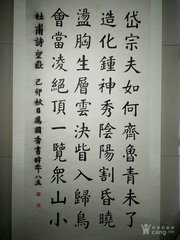 岱宗夫如何齊魯青未了
造化鍾神秀陰陽割昏曉
盪胸生層雲決眥入歸鳥
會當凌絕頂一覽衆山小
杜甫詩望嶽 己卯秋日厲國香書時年八五